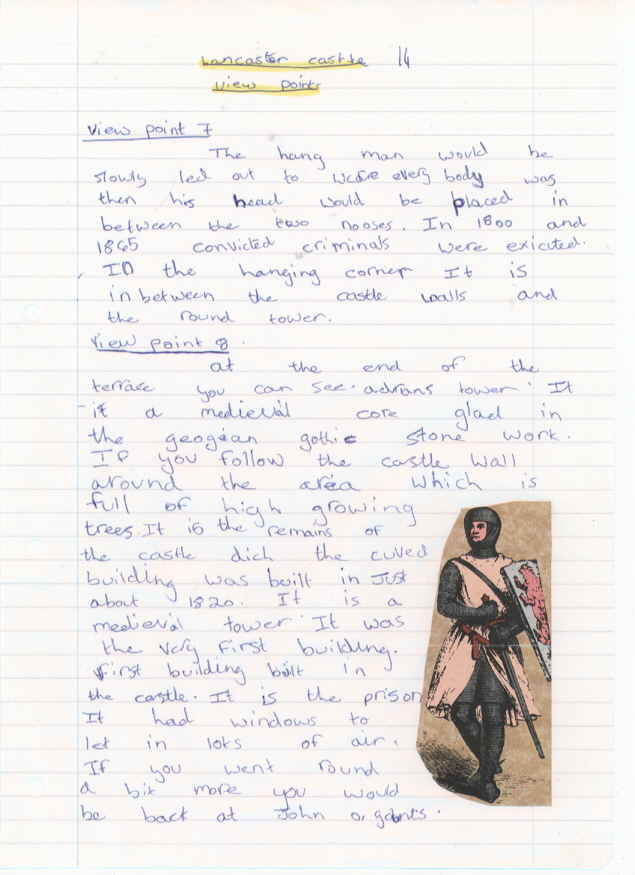 Lancaster castle 14
view points
View point 7
The hang man would be
slowly led out to were every body was
then his head would be placed in
between the two nooses. In 1800 and
1865 convicted criminals were exicuted.
In the hanging corner It is
in between the castle walls and
the round tower.
View point 8.
at the end of the
terrase you can see. adrians tower. It
is a medieval core glad in
the geogean gothic stone work.
If you follow the castle wall
around the area which is
full of high growing
trees. It is the remains of
the castle dich the cuved
building was built in Just
about 1820. It is a
medieval tower It was
the very first building.
first building built in
the castle. It is the prison
It had windows to
let in lots of air.
If you went round
a bit more you would
be back at John o, gaunts.